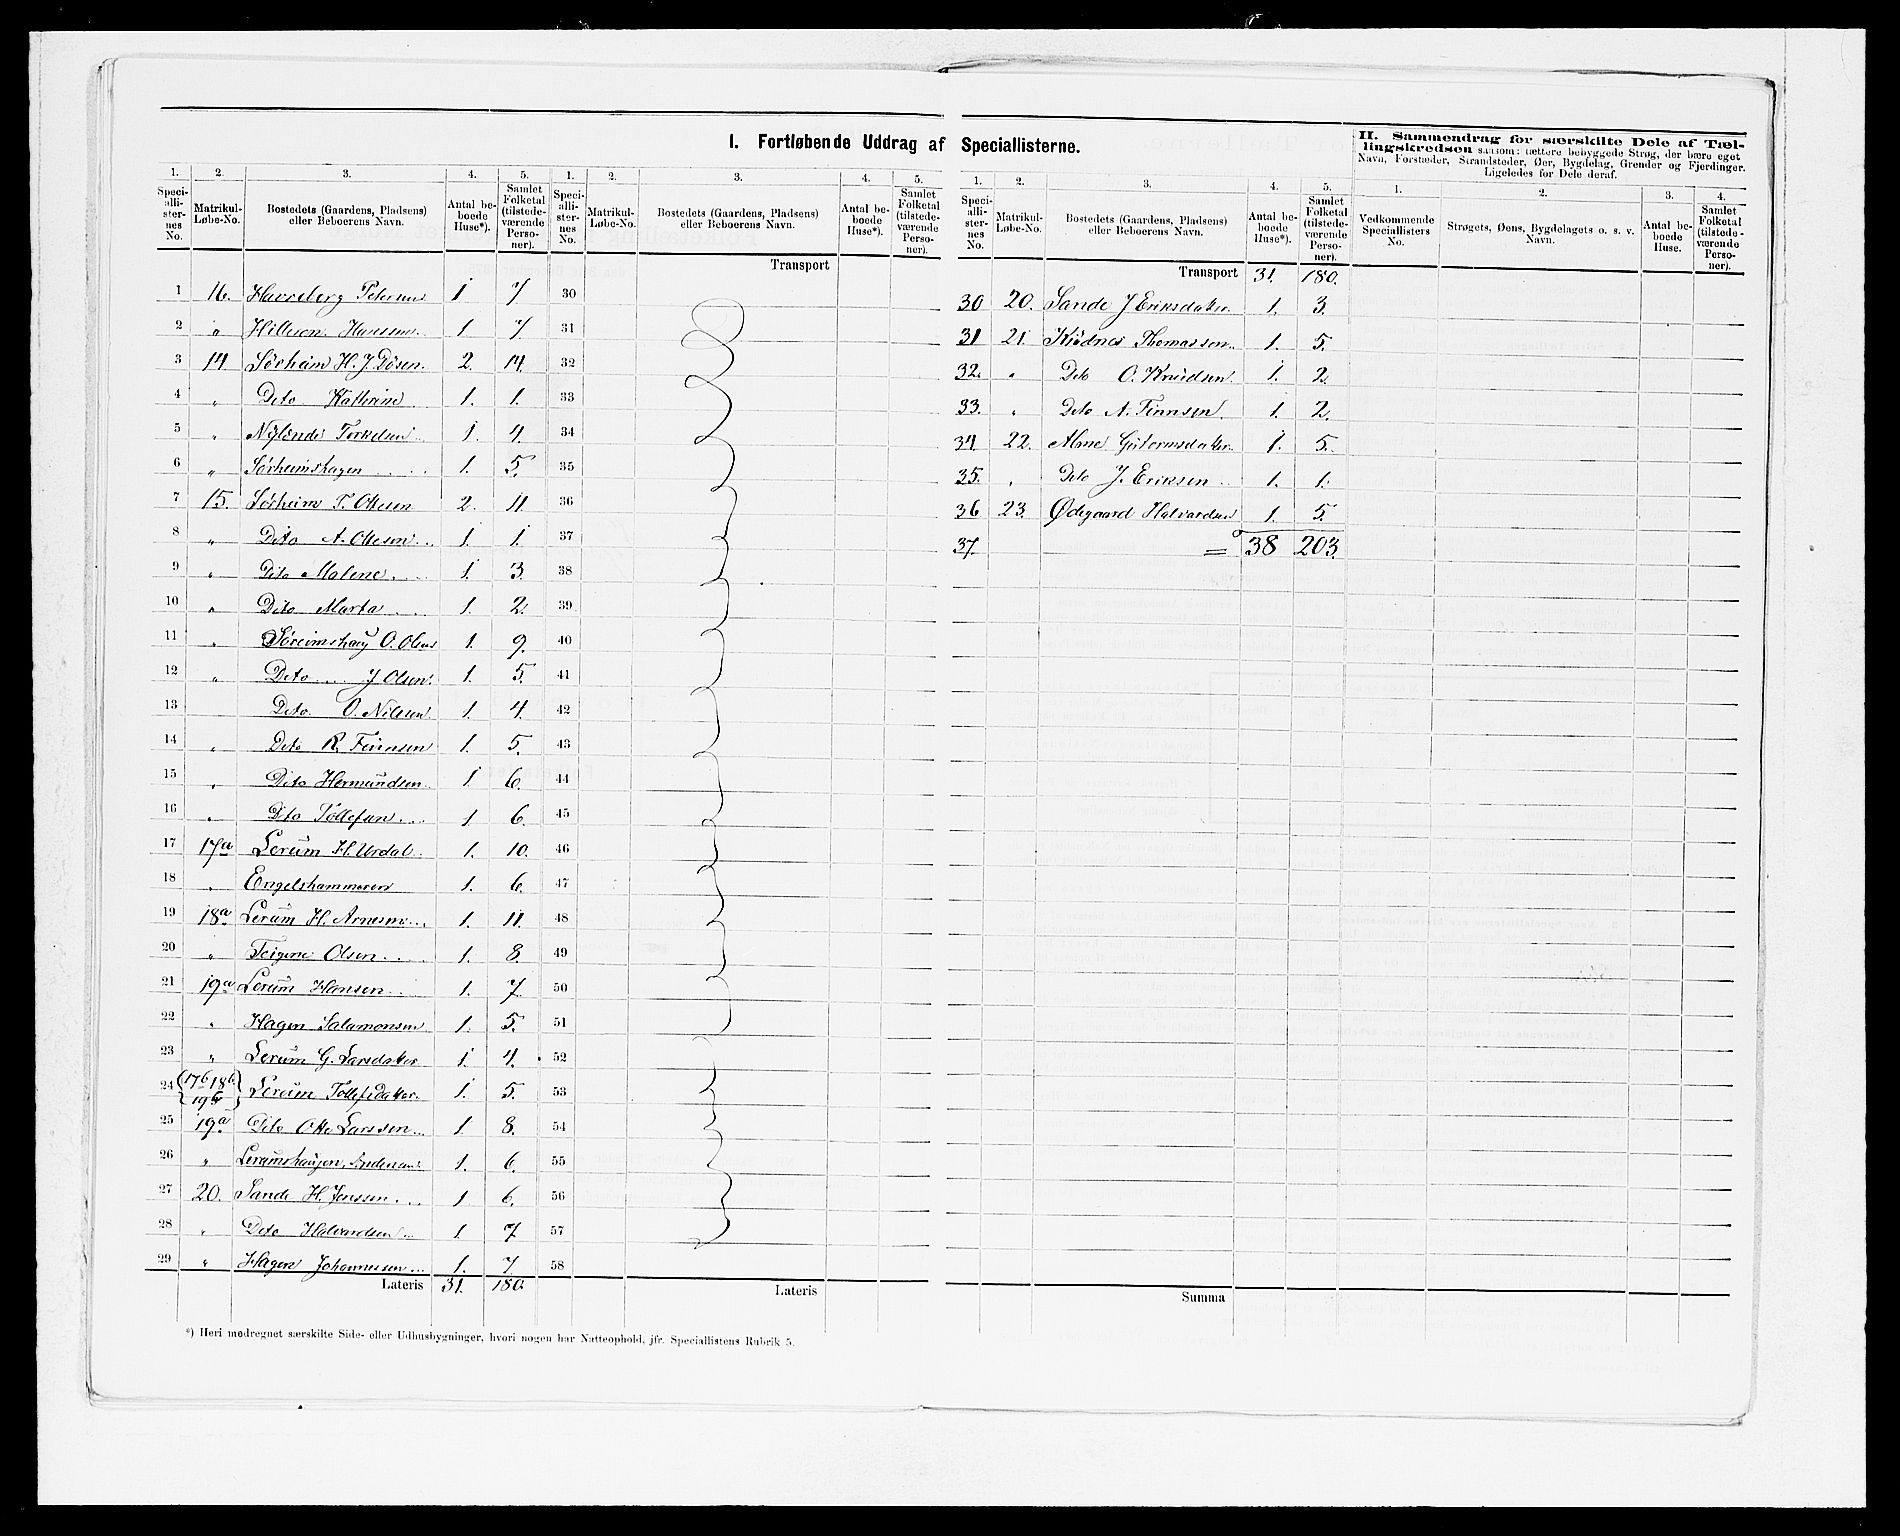 I. Fortløbende Uddrag af Speciallisterne.
II. Sammendrag for særskilte Dele af Tællingskredsen saasom: tættere bebyggede Strøg, der bære eget Navn, Forstæder, Strandsteder, Øer, Bygdelag, Grender og Fjerdinger. Ligeledes for Dele deraf.
1. 2. 3. 4. 5. 1. 2. 3. 4. 5.
Speciallisternes No. Matrikul-Løbe-No. Bostedets (Gaardens, Pladsens) eller Beboerens Navn. Antal beboede Huse*). Samlet Folketal (tilstedeværende Personer). Speciallisternes No. Matrikul-Løbe-No. Bostedets (Gaardens, Pladsens) eller Beboerens Navn. Antal beboede Huse*). Samlet Folketal (tilstedeværende Personer).
Transport
1 16. Petersen 1 7 30
2 " Hilleson Hansson 1. 7. 31
3 14. Sørheim H. J. Dösen. 2. 14. 32
4 " Dito Katherine 1. 1. 33
5 " Nylende Torkelsen 1. 4. 34
6 " Sørheimshagen 1. 5. 35
7 15. Sørheim T. Ottesen 2. 11. 36
8 " Dito A. Ottesen 1. 1. 37
9 " Dito Malene 1. 3. 38
10 " Dito Marta 1. 2. 39
11 " Søreimshaug O. Olsen 1. 9. 40
12 " Dito J Olsen. 1. 5. 41
13 Dito O. Nilsen 1. 4. 42
14 " Dito R. Finnsen 1. 5. 43
15 " Dito Hermundsen 1. 6. 44
16 " Dito Tollefsen 1. 6. 45
17 17a Lerum H. Urdal 1. 10. 46
18 " Engelshammeren 1. 6. 47
19 18a Lerum H. Arnesen 1. 11. 48
20 " Teigene Olsen 1. 8. 49
21 19a Lerum Hansen 1. 7. 50
22 " Hagen Salamonsen 1. 5. 51
23 " Lerum G. Larsdatter 1. 4. 52
24 {17b 18b 19b} Lerum Tollefsdatter 1. 5. 53
25 19a Dito Otto Larssen 1. 8. 54
26 " Lerumshaugen, Andersen 1. 6. 55
27 20. Sande H. Jenssen 1 6. 56
28 " Dito Halvardsen 1. 7 57
29 " Hagen Johannessen 1. 7. 58
Lateris 31. 180. Lateris
*) Heri medregnet særskilte Side- eller Udhusbygninger, hvori nogen har Natteophold, jfr. Speciallistens Rubrik 5.
1. 2. 3. 4. 5.
Speciallisternes No. Matrikul-Løbe-No. Bostedets (Gaardens, Pladsens) eller Beboerens Navn. Antal beboede Huse*). Samlet Folketal (tilstedeværende Personer).
Transport 31. 180.
30 20. Sande J Eriksdatter 1. 3.
31 21. Thomassen 1. 5.
32. " Dito O. Knudsen. 1. 2.
33. " Dito A. Finnsen. 1. 2.
34. 22. Alme Gutormsdatter 1. 5.
35. " Dito J. Eriksen 1. 1.
36 23. Ødegaard Halvardsen 1. 5.
37. = 38 203.
Summa
1. 2. 3. 4.
Vedkommende Speciallisters No. Strøgets, Øens, Bygdelagets o. s. v. Navn. Antal beboede Huse. Samlet Folketal (tilstedeværende Personer).